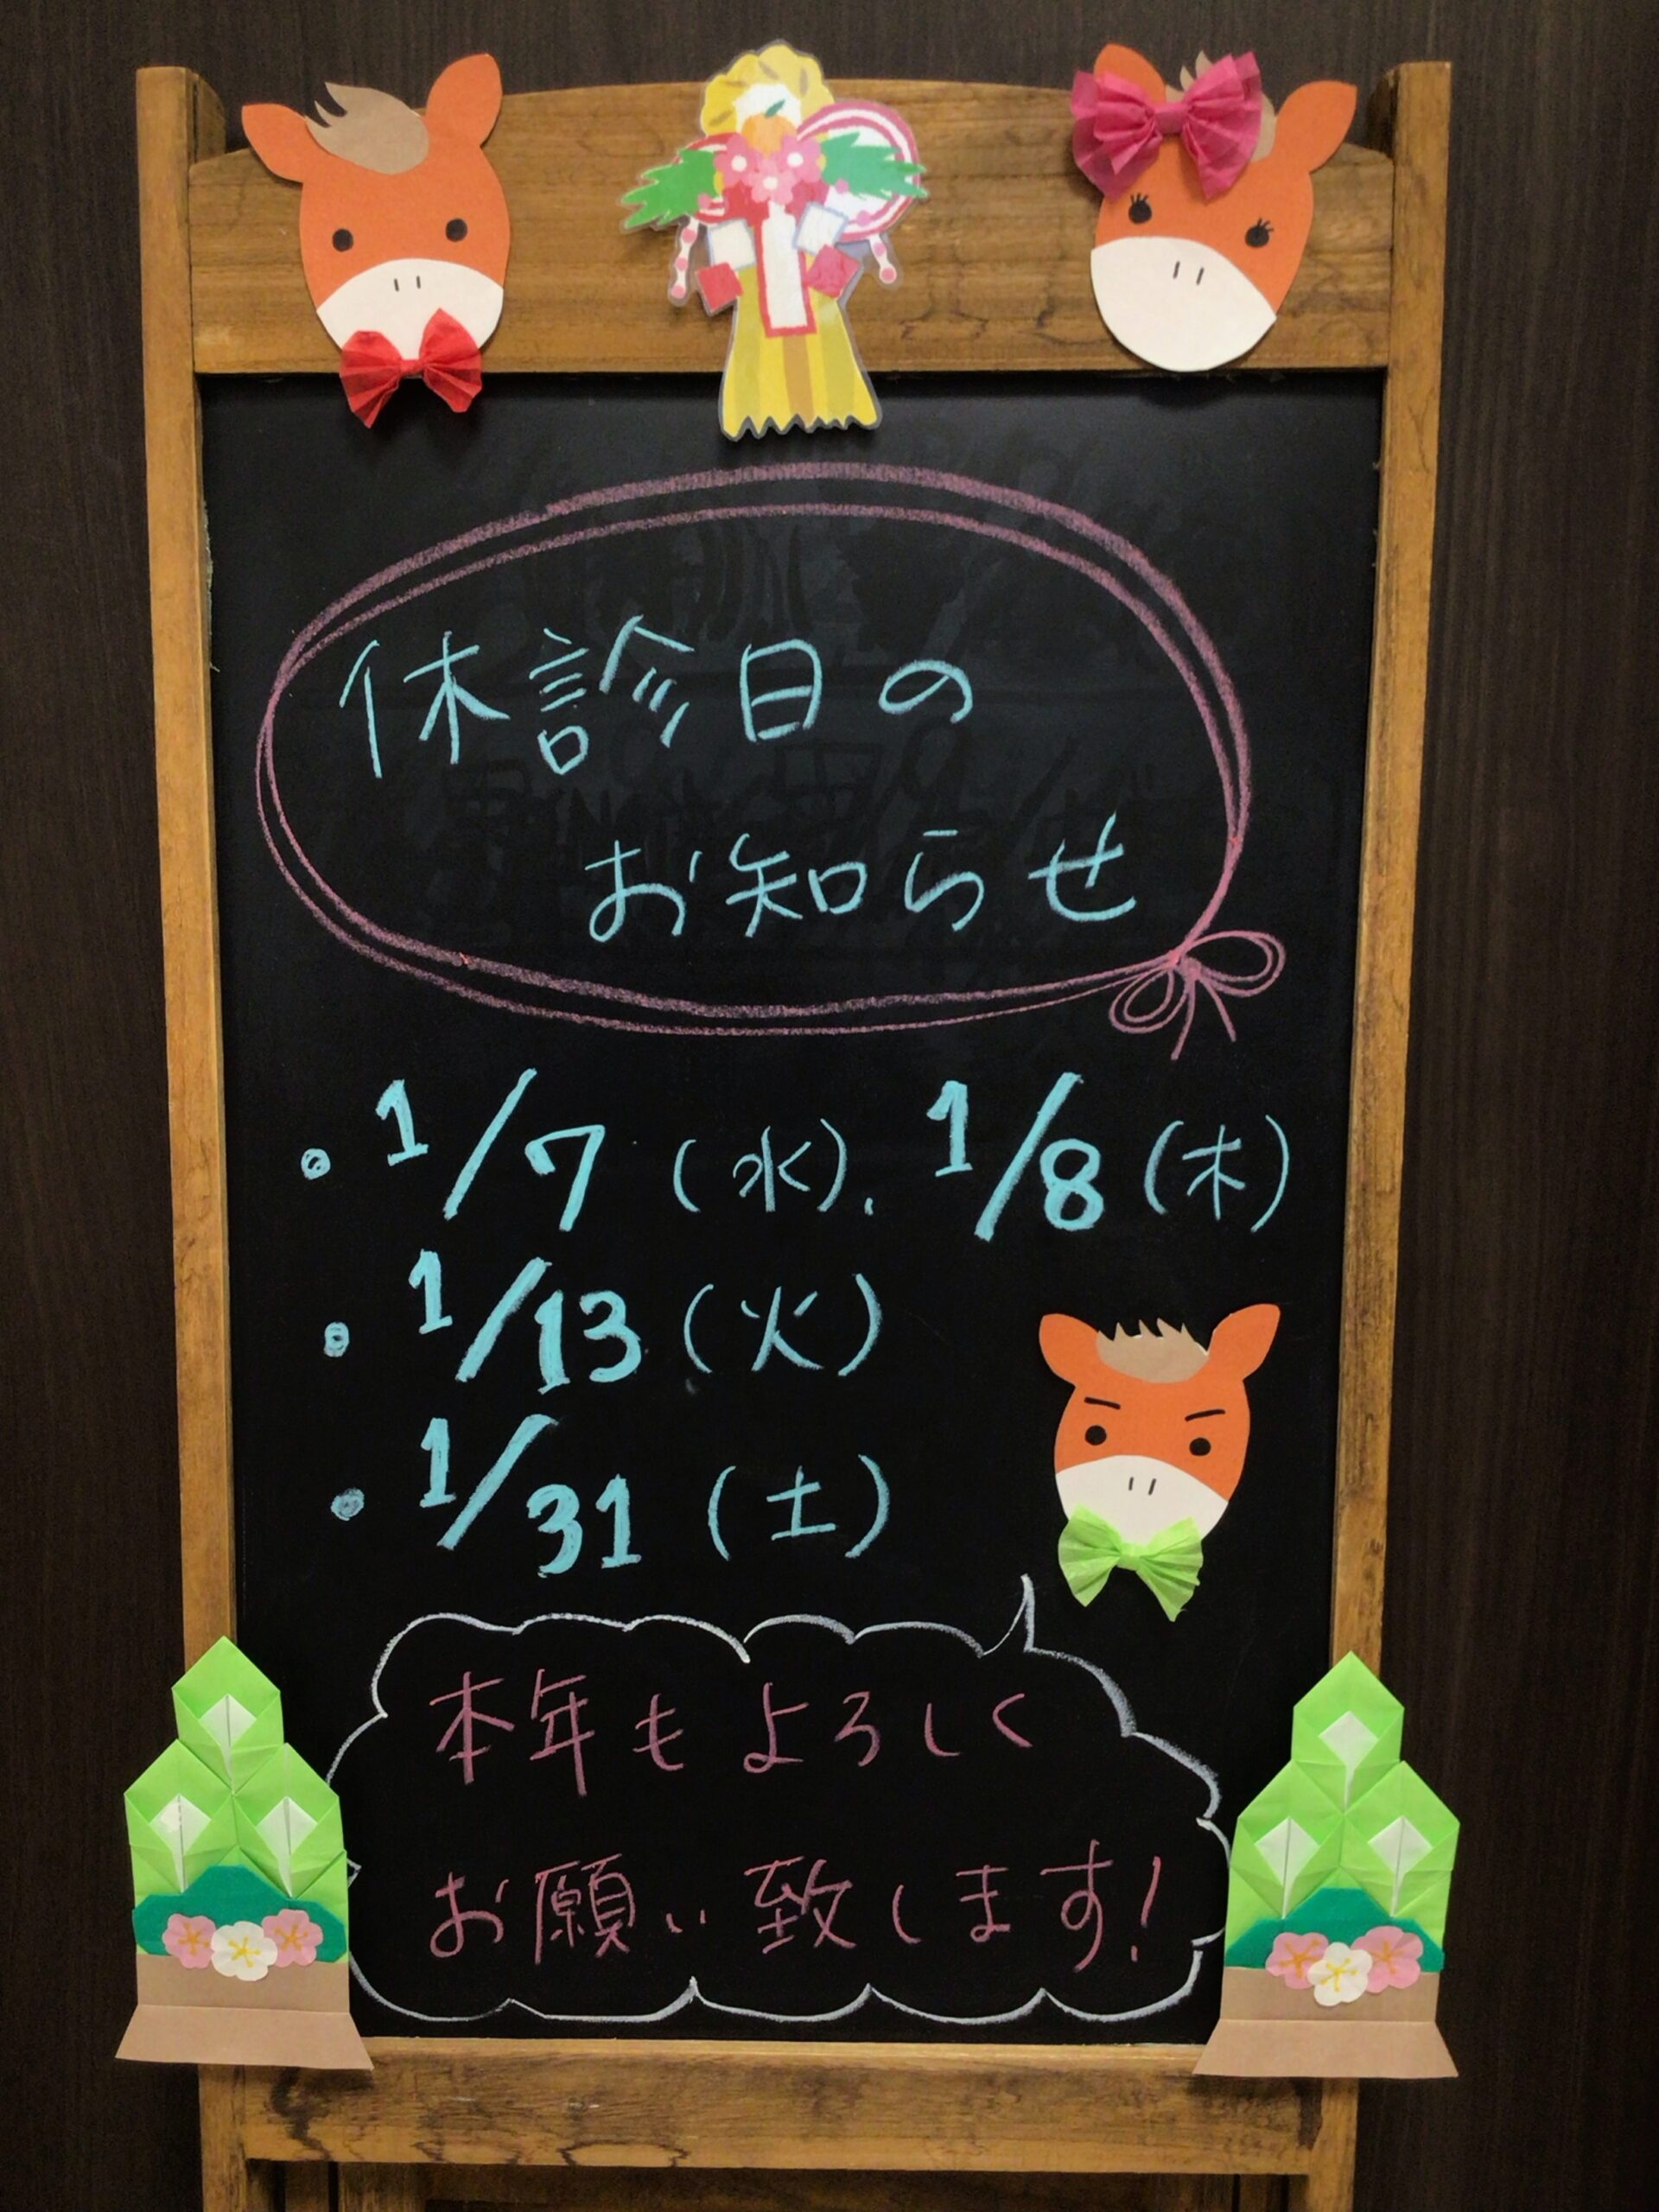 休診日の
お知らせ
・1/7(水)、1/8(木)
・1/13(火)
・1/31(土)
本年もよろしく
お願い致します!